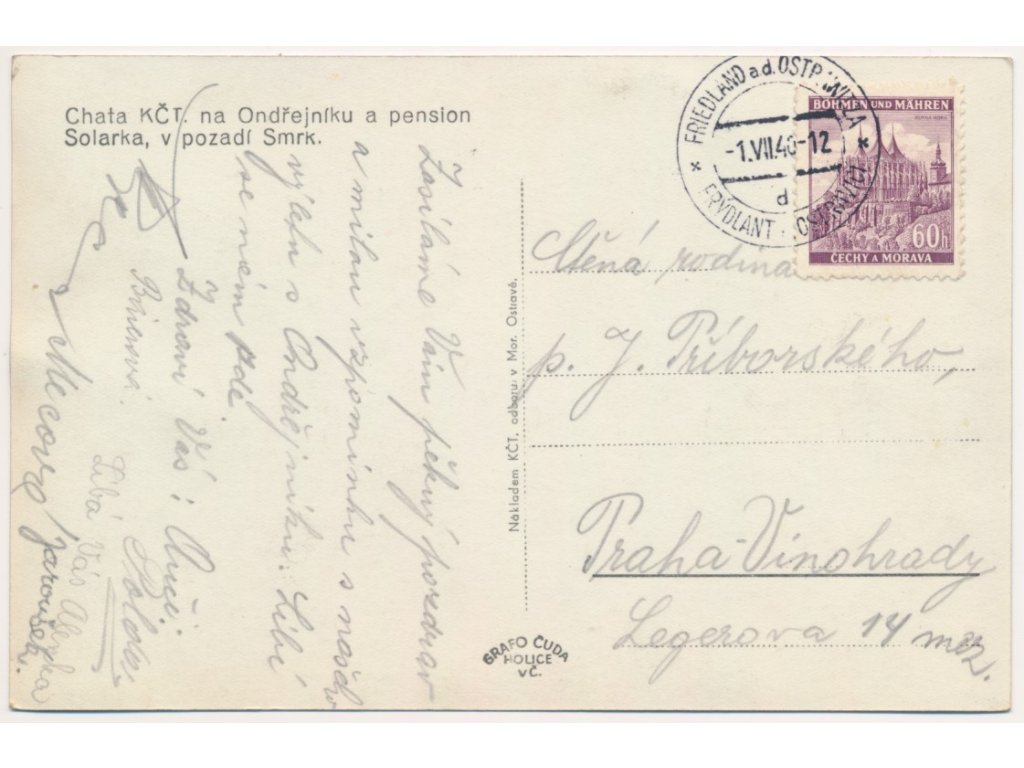 Chata KČT. na Ondřejníku a pension
Solarka, v pozadí Smrk.
Zasíláme Vám pěkný pozdrav
a milou vzpomínku s našeho
výletu s Ondřejníku. Líbí
se nám zde.
Zdraví Vás:
Mecova
Jaroušek
Líbá Vás
Nákladem KČT, odboru v Mor. Ostravě.
GRAFO ČUDA
HOLICE
V Č.
FRIEDLAND a d. OSTRAWITZA
-1.VII.40-12
d
FRÝDLANT N. OSTRAVICÍ
BÖHMEN UND MÄHREN
60h
ČECHY A MORAVA
Ctěná rodina
p. J. Příborského,
Praha-Vinohrady
Legerova 14 mez.